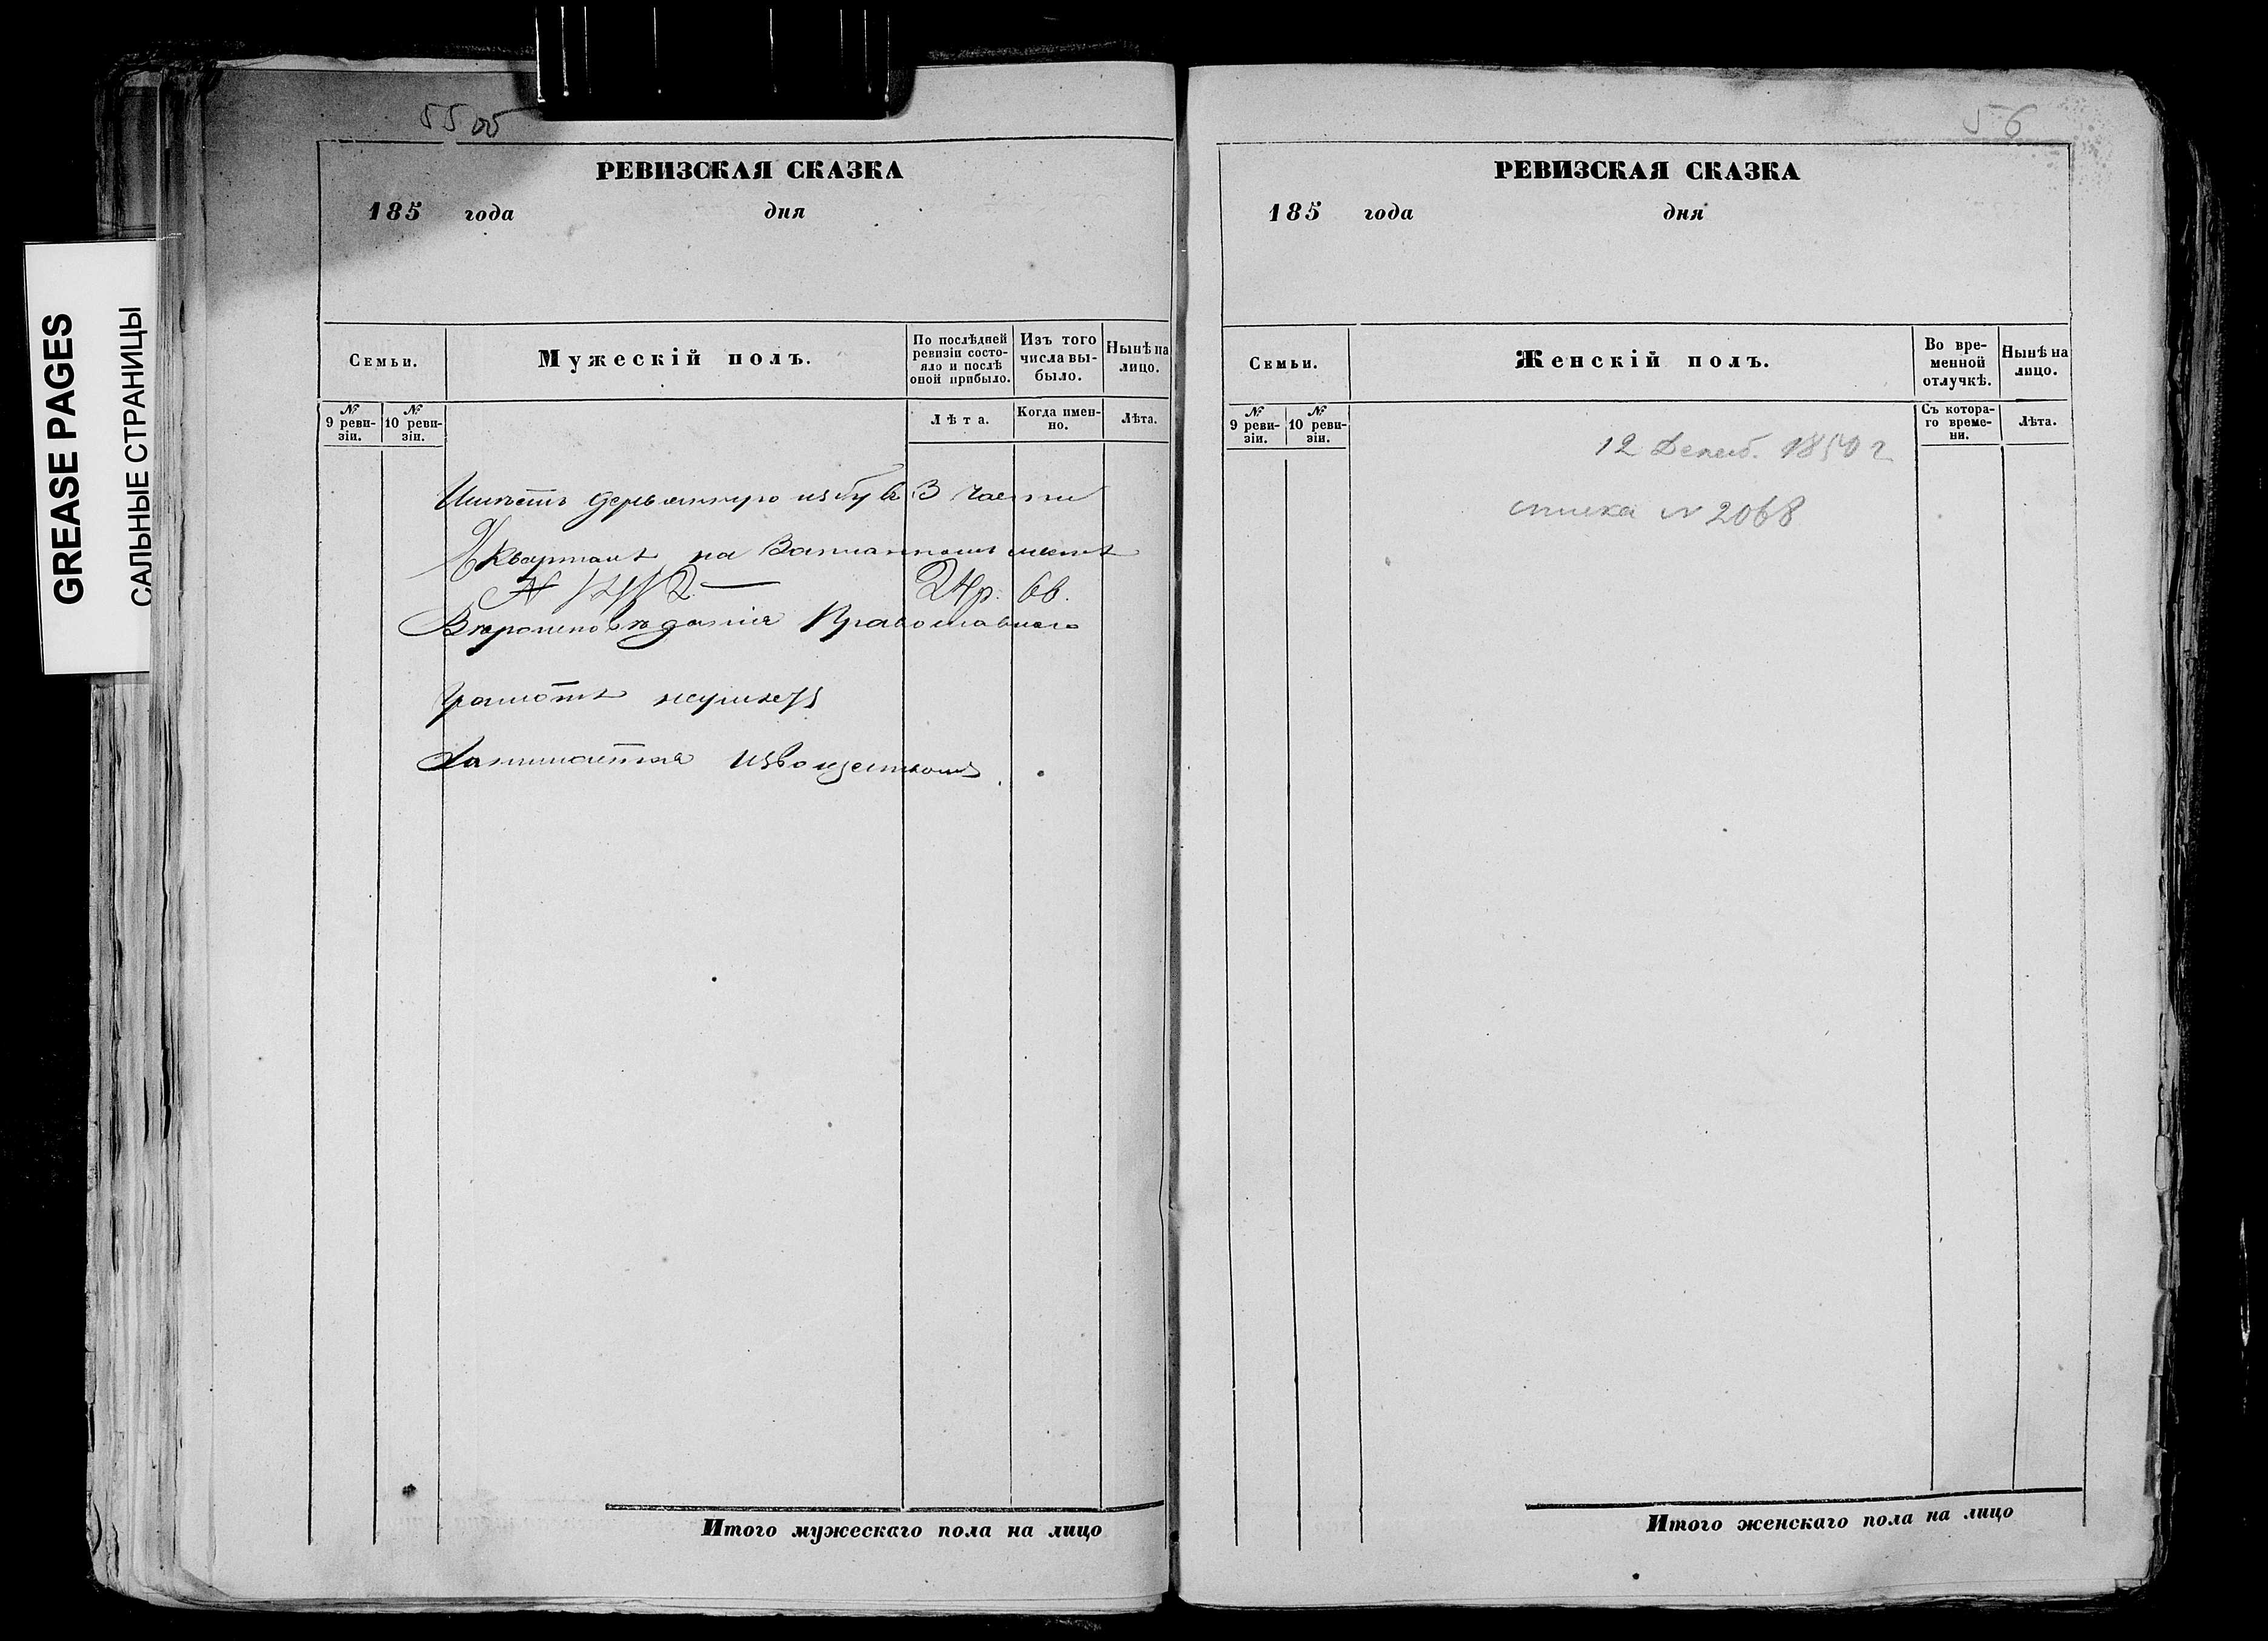 55 об
РЕВИЗСКАЯ СКАЗКА
185 года дня
Семьи.
Мужескій полъ.
По послѣдней ревизіи состояло и послѣ оной прибыло.
Изъ того числа выбыло.
Нынѣ на лицо.
№ 9 ревизіи.
№ 10 ревизіи.
Лѣта.
Когда именно.
Лѣта.
Имѣетъ деревянную избу въ 3 части
Кварталѣ на мѣстѣ
24 р.
Вѣроисповѣданія Православнаго
Грамотѣ неумѣетъ
Занимается Извоществомъ
Итого мужескаго пола на лицо
56
РЕВИЗСКАЯ СКАЗКА
185 года дня
Семьи.
Женскій полъ.
Во временной отлучкѣ.
Нынѣ на лицо.
№ 9 ревизіи.
№ 10 ревизіи.
Съ котораго времени.
Лѣта.
12 Декаб. 1850 г
№ 2068
Итого женскаго пола на лицо
GREASE PAGES
САЛЬНЫЕ СТРАНИЦЫ